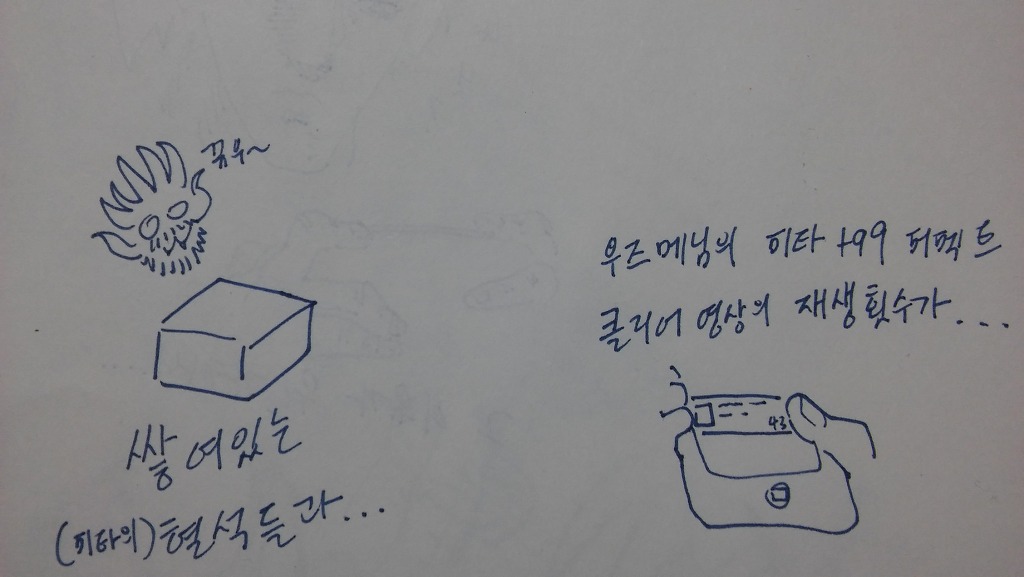 꾸우~
쌓여있는
(피타의) 혈석들과...
우즈메님의 피타 +99 퍼펙트
클리어 영상의 재생횟수가...
43